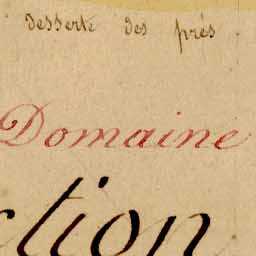 desserte des prés
Domaine
ction